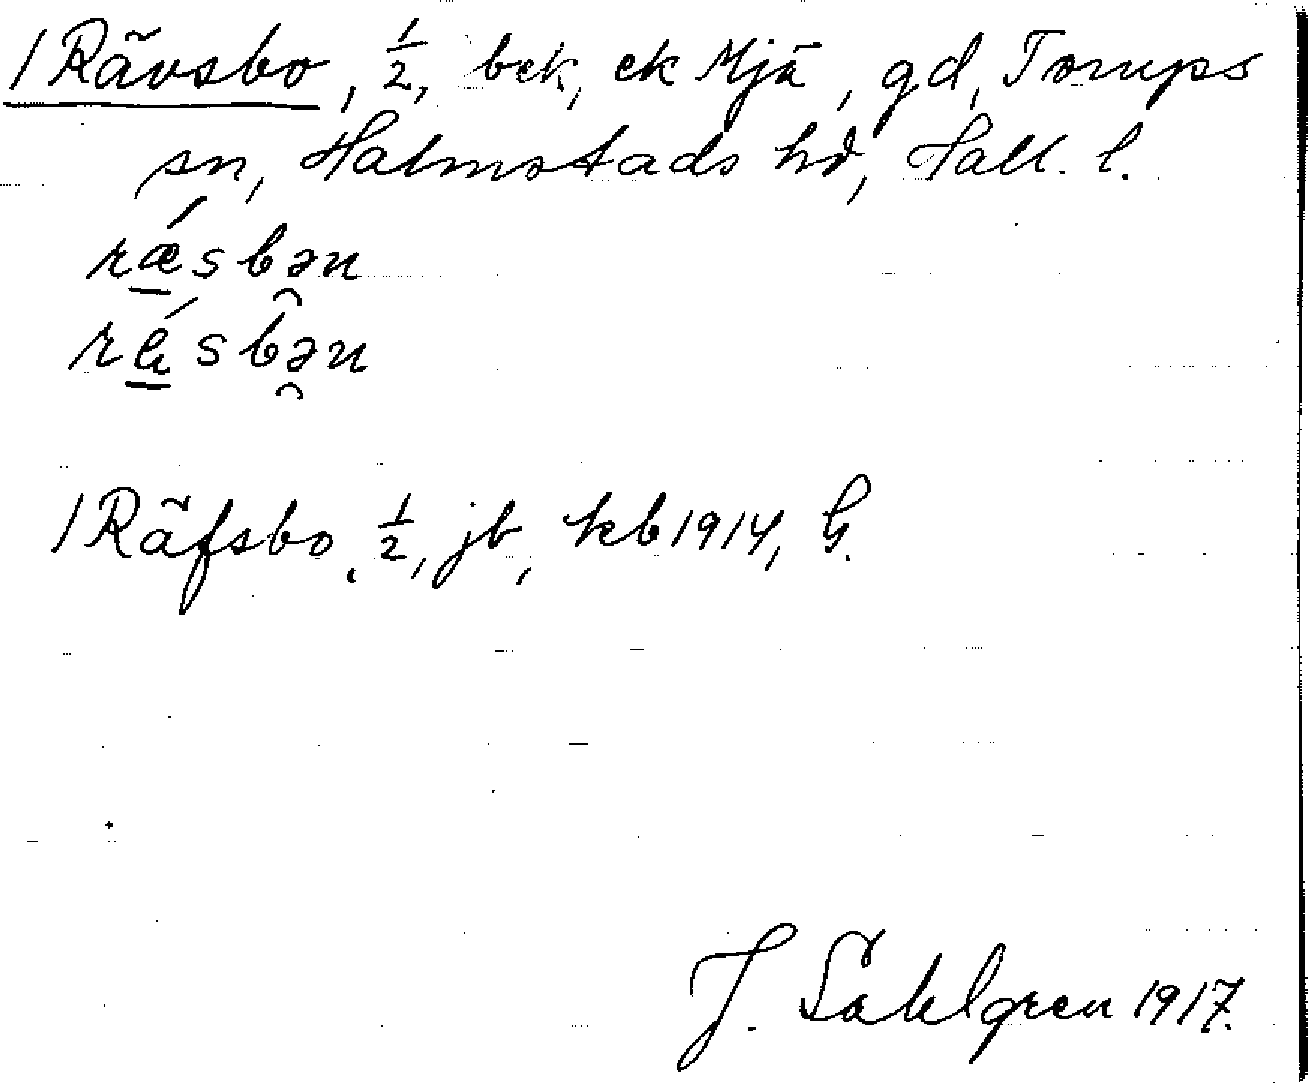 1 Rävsbo, 1/2, bek, ek Mjä, gd, Torups
sn, Halmstads hd, Hall. l.
rǽsbən
résbən
1 Räfsbo, 1/2, jb, kb 1914, G.
J. Sahlgren 1917.